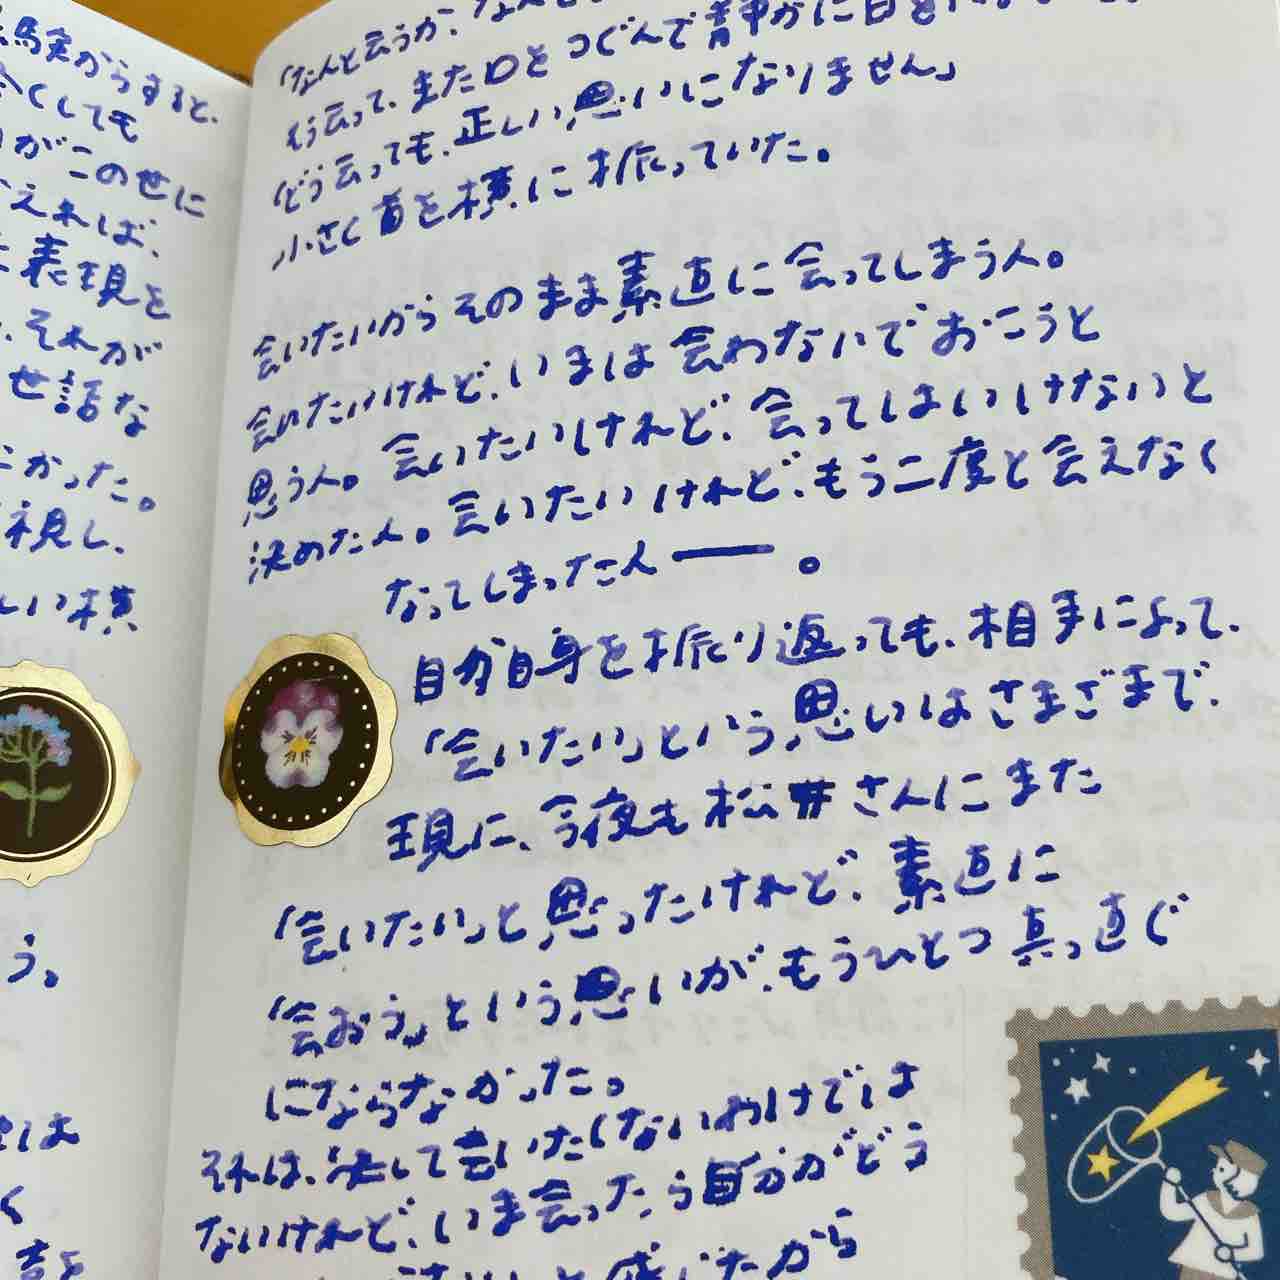 験実からすると、
くしても
がこのせに
えれば、
表現を
、それが
世話な
かった。
視し、
しい横
う。
は
く
「なんと云うか、なん
そう云って、また口をつぐんで背中が
「どう云っても、正しい思いになりません」
小さく首を横に振っていた。
会いたいからそのまま素直に会ってしまう人。
会いたいけれど、いまは会わないでおこうと
思う人。会いたいけれど、会ってはいけないと
決めた人。会いたいけれど、もう二度と会えなく
なってしまった人――。
自分自身を振り返っても、相手によって、
「会いたい」という思いはさまざまで、
現に、今夜も松井さんにまた
「会いたい」と思ったけれど、素直に
「会おう」という思いが、もうひとつ真っ直ぐ
にならなかった。
それは、決して会いたくないわけでは
ないけれど、いま会ったら自分がどう
と感じたから